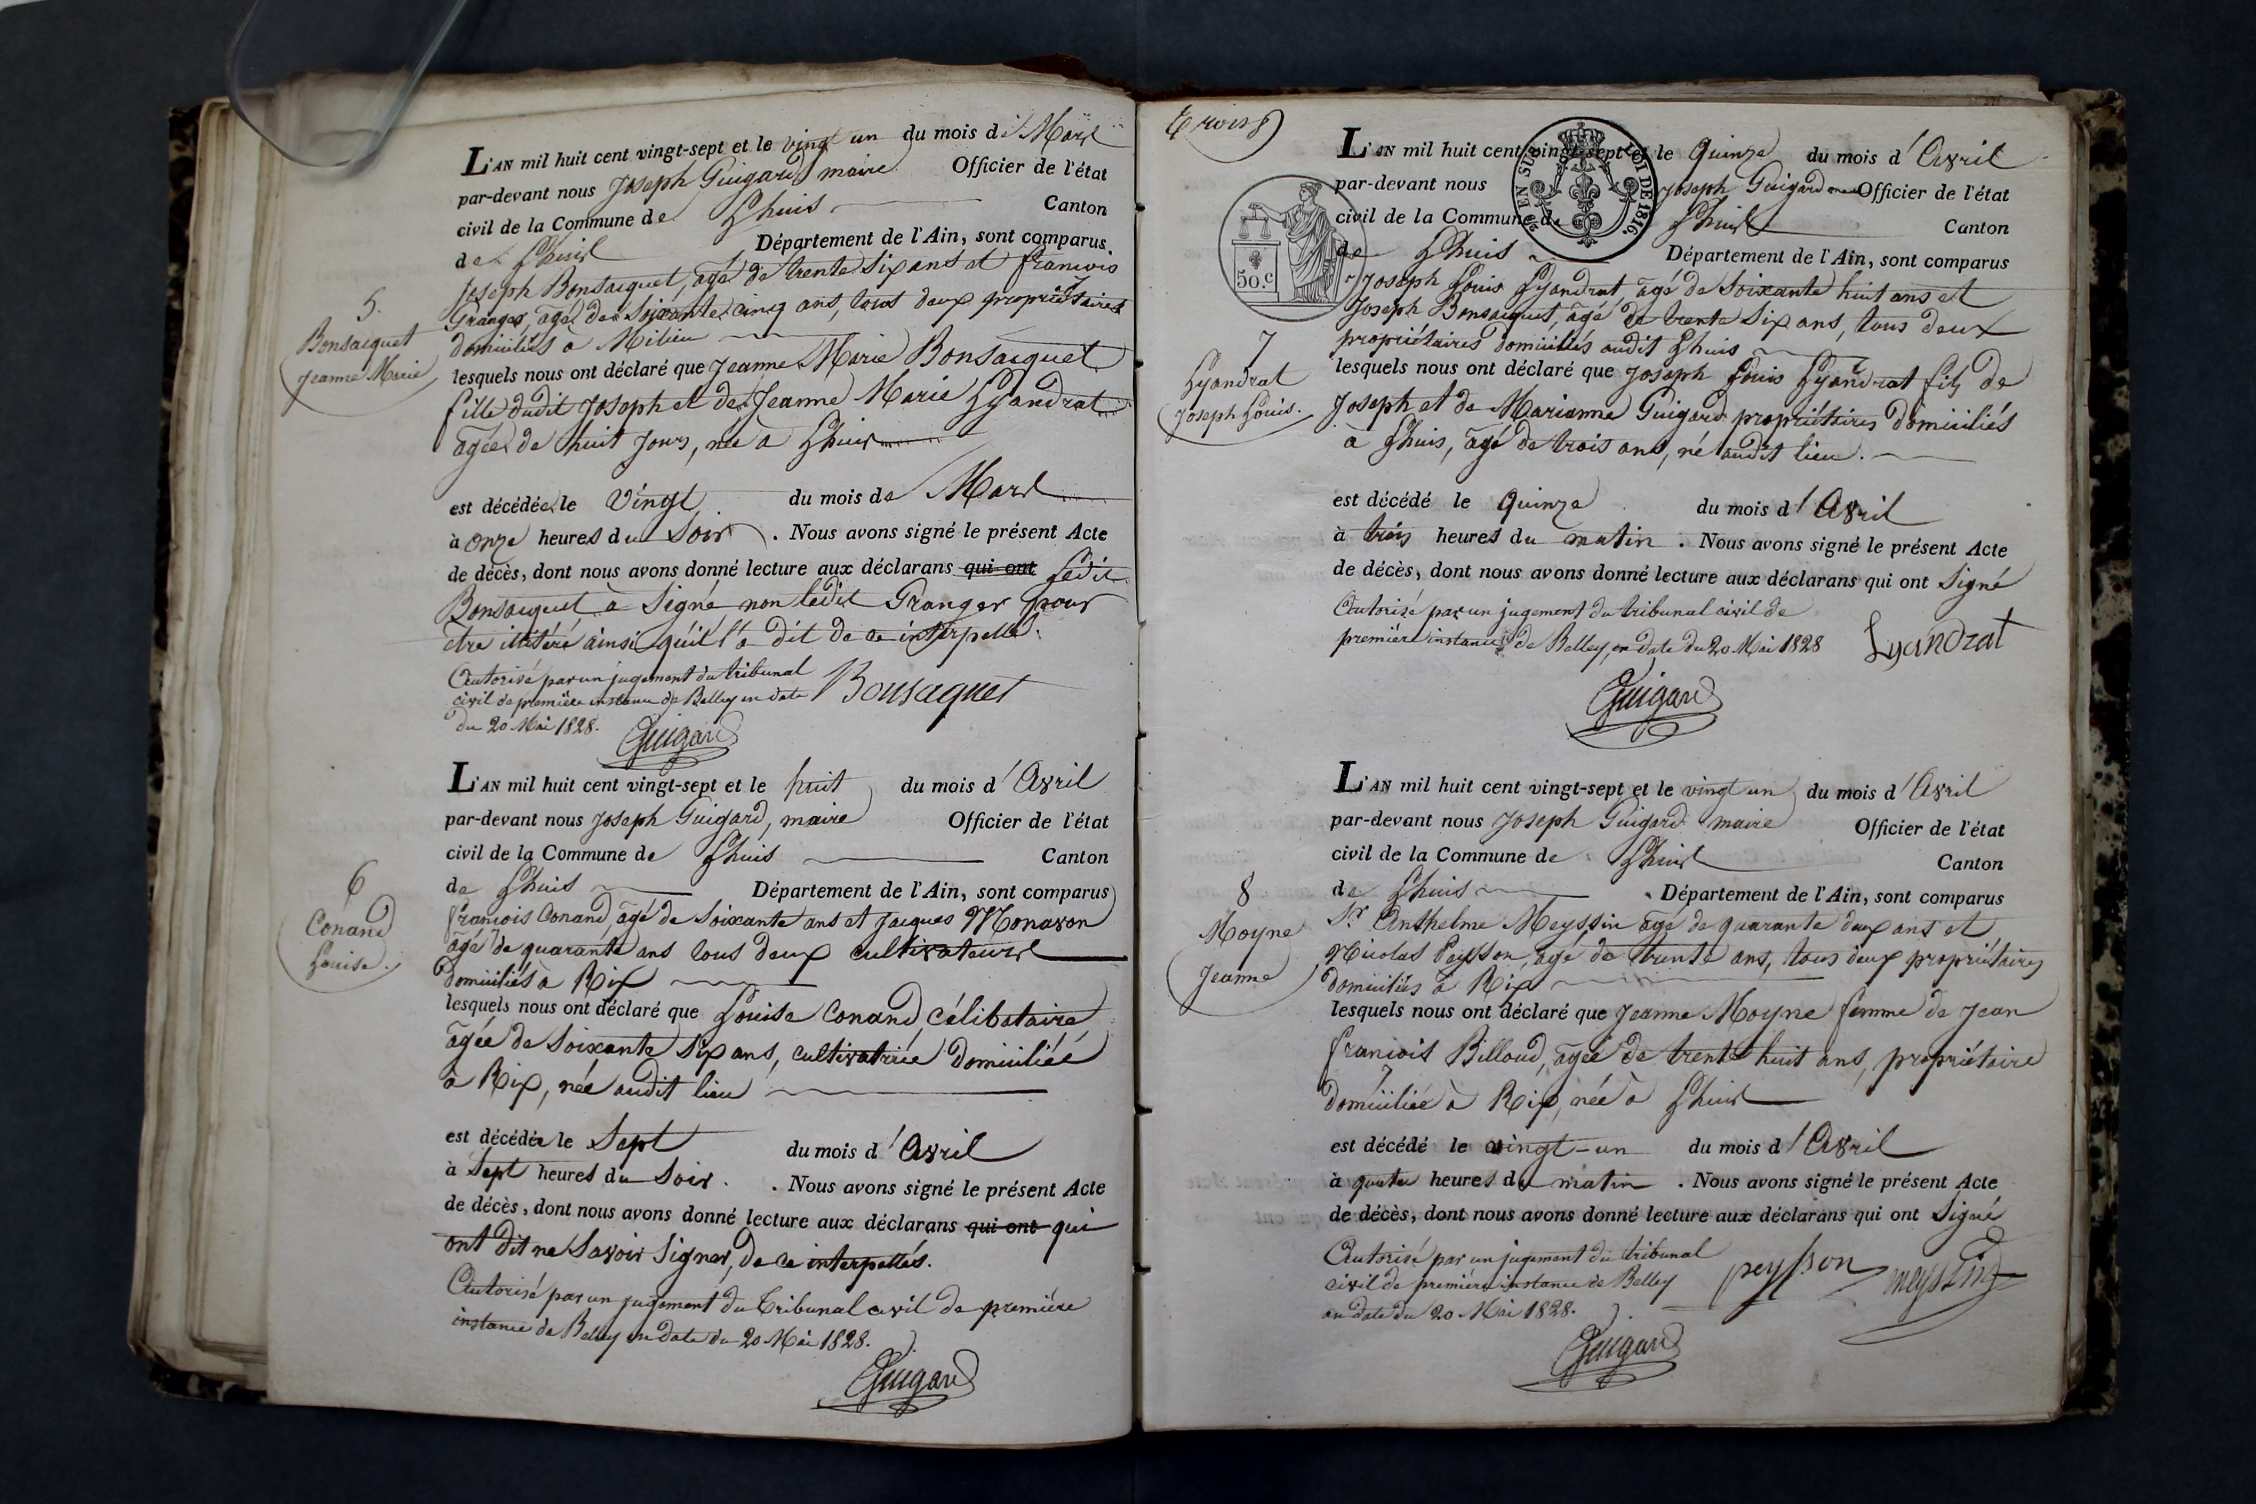 L'AN mil huit cent vingt-sept et le vingt un du mois de Mars
par-devant nous Joseph Guigard maire Officier de l'état
civil de la Commune de Lhuis Canton
de Lhuis Département de l'Ain, sont comparus
Joseph Bonsacquet, agé de trente six ans et françois
Granger, agé de soixante cinq ans, tous deux propriétaires
domiciliés a Milieu
5.
Bonsacquet
Jeanne Marie
lesquels nous ont déclaré que Jeanne Marie Bonsacquet
fille dudit Joseph et de Jeanne Marie Lyandrat
agée de huit jours, née a Lhuis
est décédée le vingt du mois de Mars
à onze heures du soir. Nous avons signé le présent Acte
de décès, dont nous avons donné lecture aux déclarans qui ont ledit
Bonsacquet à signé non ledit Granger pour
etre illitéré ainsi qu'il l'a dit de ce interpellé.
Autorisé par un jugement du tribunal
civil de première instance de Belley en date
du 20 Mai 1828.
Bonsacquet
Guigard
L'AN mil huit cent vingt-sept et le huit du mois d'Avril
par-devant nous Joseph Guigard, maire Officier de l'état
civil de la Commune de Lhuis Canton
de Lhuis Département de l'Ain, sont comparus
françois Conand, agé de soixante ans et Jacques Monavon
agé de quarante ans tous deux cultivateurs
domiciliés à Rix
6
Conand
Louise.
lesquels nous ont déclaré que Louise Conand, célibataire
agée de soixante six ans, cultivatrice domiciliée
à Rix, née audit lieu
est décédée le Sept du mois d'Avril
à Sept heures du soir. Nous avons signé le présent Acte
de décès, dont nous avons donné lecture aux déclarans qui ont qui
ont dit ne savoir signer, de ce interpellés.
Autorisé par un jugement du tribunal civil de première
instance de Belley en date du 20 Mai 1828.
Guigard
trois
EN SUS LOI DE 1816.
50.c
L'AN mil huit cent vingt-sept et le quinze du mois d'Avril
par-devant nous Joseph Guigard maire Officier de l'état
civil de la Commune de Lhuis Canton
de Lhuis Département de l'Ain, sont comparus
Joseph Louis Lyandrat, agé de soixante huit ans et
Joseph Bonsacquet, agé de trente six ans, tous deux
propriétaires domiciliés audit Lhuis
7
Lyandrat
Joseph Louis.
lesquels nous ont déclaré que Joseph Louis Lyandrat fils de
Joseph et de Marianne Guigard propriétaires domiciliés
à Lhuis, âgé de trois ans, né audit lieu.
est décédé le quinze du mois d'Avril
à trois heures du matin. Nous avons signé le présent Acte
de décès, dont nous avons donné lecture aux déclarans qui ont signé
Autorisé par un jugement du tribunal civil de
première instance de Belley, en date du 20 Mai 1828
Lyandrat
Guigard
L'AN mil huit cent vingt-sept et le vingt un du mois d'Avril
par-devant nous Joseph Guigard maire Officier de l'état
civil de la Commune de Lhuis Canton
de Lhuis Département de l'Ain, sont comparus
Sr Anthelme Meyssin agé de quarante deux ans et
Nicolas Peysson, agé de trente ans, tous deux propriétaires
domiciliés à Rix
8
Moyne
Jeanne
lesquels nous ont déclaré que Jeanne Moyne femme de Jean
françois Billoud, agée de trente huit ans, propriétaire
domiciliée à Rix, née à Lhuis
est décédé le vingt-un du mois d'Avril
à quatre heures du matin. Nous avons signé le présent Acte
de décès, dont nous avons donné lecture aux déclarans qui ont signé
Autorisé par un jugement du tribunal
civil de première instance de Belley
en date du 20 Mai 1828.
peysson
meyssin
Guigard